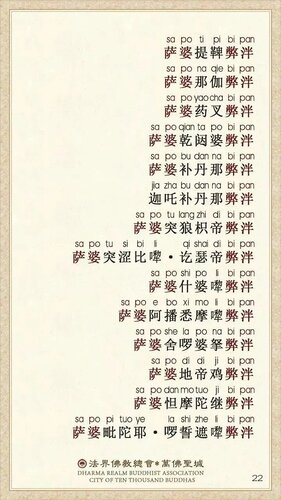 sa po ti pi bi pan
萨婆提鞞弊泮
sa po na qie bi pan
萨婆那伽弊泮
sa po yao cha bi pan
萨婆药叉弊泮
sa po qian ta po bi pan
萨婆乾闼婆弊泮
sa po bu dan na bi pan
萨婆补丹那弊泮
jia zha bu dan na bi pan
迦吒补丹那弊泮
sa po tu lang zhi di bi pan
萨婆突狼枳帝弊泮
sa po tu si bi li qi shai di bi pan
萨婆突涩比㗚·讫瑟帝弊泮
sa po shi po li bi pan
萨婆什婆㗚弊泮
sa po e bo xi mo li bi pan
萨婆阿播悉摩㗚弊泮
sa po she la po na bi pan
萨婆舍啰婆拏弊泮
sa po di di ji bi pan
萨婆地帝鸡弊泮
sa po dan mo tuo ji bi pan
萨婆怛摩陀继弊泮
sa po pi tuo ye la shi zhe li bi pan
萨婆毗陀耶·啰誓遮㗚弊泮
法界佛教總會·萬佛聖城
DHARMA REALM BUDDHIST ASSOCIATION
CITY OF TEN THOUSAND BUDDHAS
22